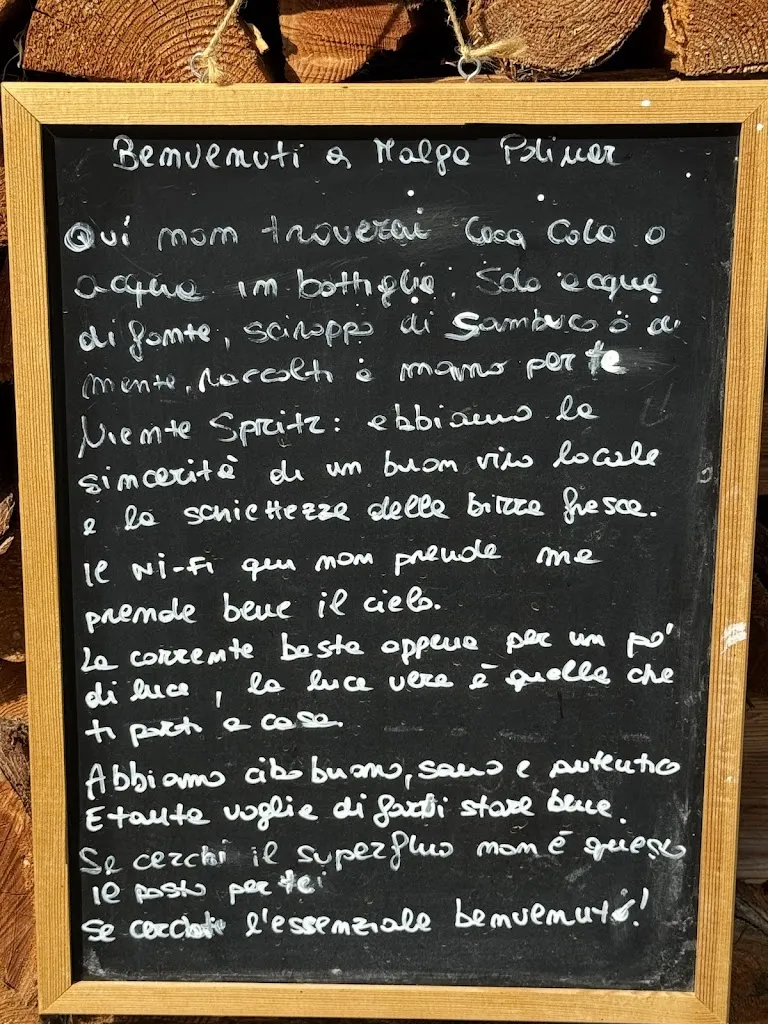 Benvenuti a Malga Polinar
Qui non troverai Coca Cola o
acqua in bottiglia. Solo acqua
di fonte, sciroppo di Sambuco o di
menta, raccolti a mano per te
Niente Spritz: abbiamo la
sincerità di un buon vino locale
e la schiettezza della birra fresca.
Il Wi-Fi qui non prende ma
prende bene il cielo.
La corrente basta appena per un po'
di luce, la luce vera è quella che
ti porti a casa.
Abbiamo cibo buono, sano e autentico
E tanta voglia di farvi stare bene.
Se cerchi il superfluo non è questo
il posto per te
Se cercate l'essenziale benvenuti!